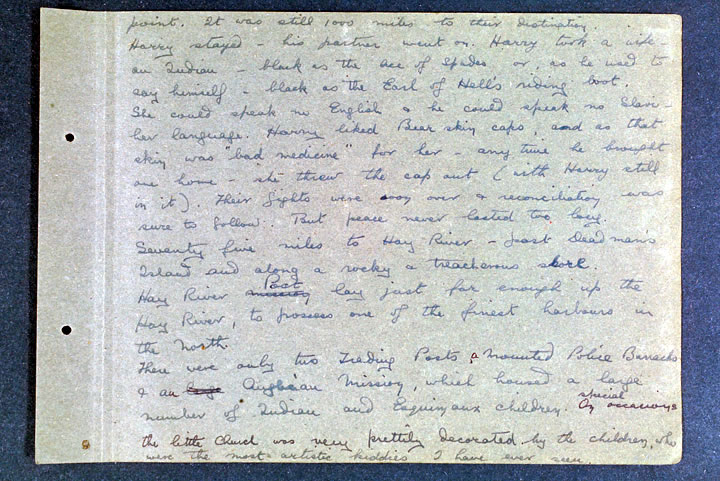 point. It was still 1000 miles to their distination.
Harry stayed - his partner went on. Harry took a wife -
an Indian - black as the ace of Spades or, as he used to
say himself - black as the Earl of Hell's riding boot.
She could speak no English & he could speak no Slave -
her language. Harry liked Bear skin caps, and as that
skin was "bad medicine" for her - any time he brought
one home - she threw the cap out (with Harry still
in it). Their fights were soon over & reconciliation was
sure to follow. But peace never lasted too long.
Seventy five miles to Hay River - past Deadman's
Island and along a rocky & treacherous shore.
Hay River mission Post lay just far enough up the
Hay River, to possess one of the finest harbours in
the North.
There were only two Trading Posts, a Mounted Police Barracks
& an large Anglican Mission, which housed a large
number of Indian and Esquimaux children. On special occasions
the little Church was very prettily decorated by the children, who
were the most artistic kiddies I have ever seen.